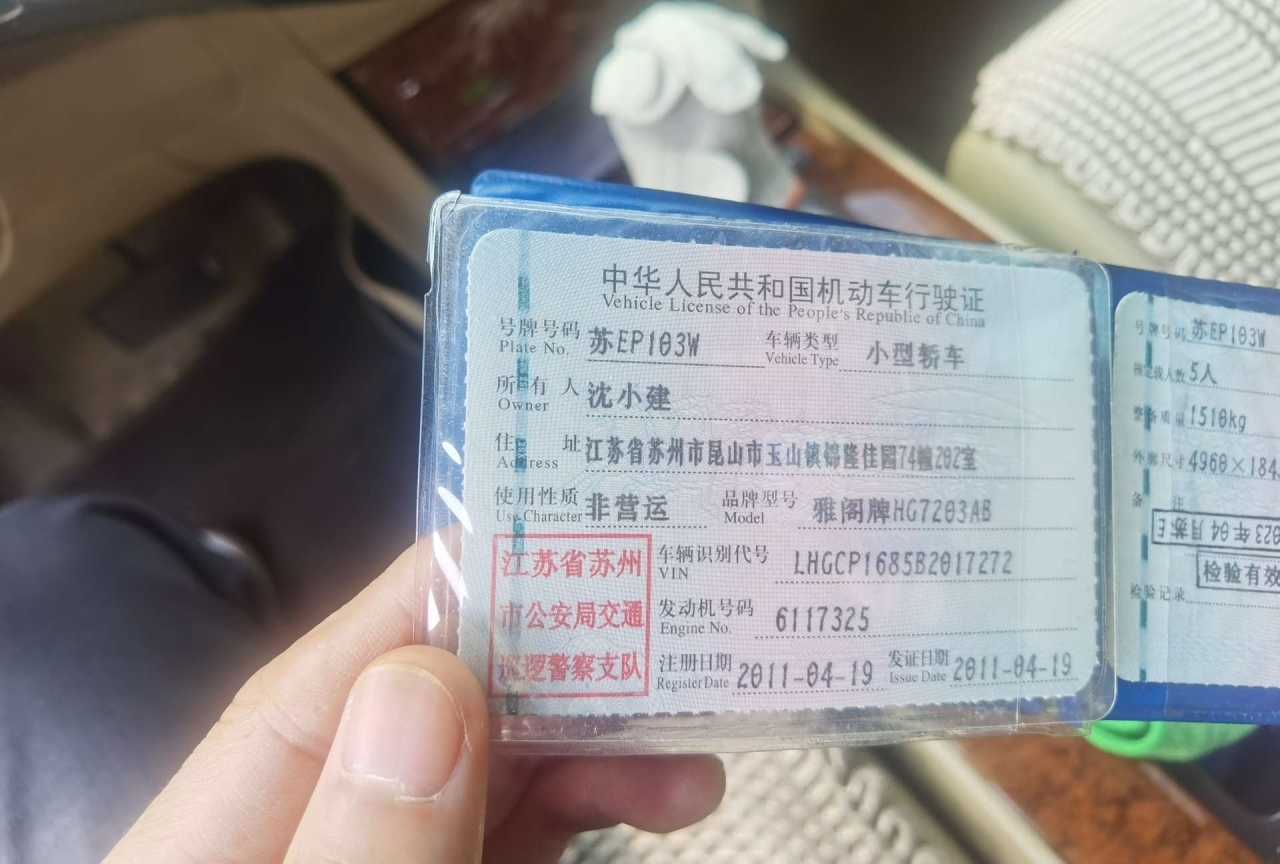 中华人民共和国机动车行驶证
Vehicle License of the People's Republic of China
号牌号码 苏EP103W 车辆类型 小型轿车
Plate No. Vehicle Type
所有人 沈小建
Owner
住址 江苏省苏州市昆山市玉山镇锦隆佳园74幢202室
Address
使用性质 非营运 品牌型号 雅阁牌HG7203AB
Use Character Model
江苏省苏州
市公安局交通
巡逻警察支队
车辆识别代号 LHGCP1685B2017272
VIN
发动机号码 6117325
Engine No.
注册日期 2011-04-19 发证日期 2011-04-19
Register Date Issue Date
号牌号码 苏EP103W
核定载人数 5人
整备质量 1510kg
外廓尺寸 4960×184
备注
023年04月苏E
检验有效
检验记录